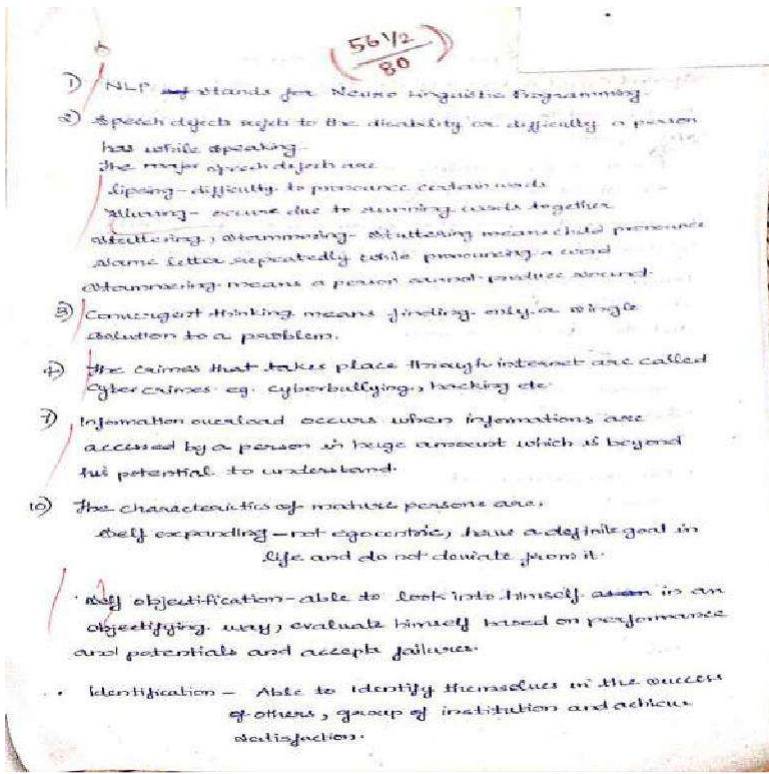 56 1/2
80
1) NLP stands for Neuro Linguistic Programming.
2) Speech defects refers to the disability or difficulty a person
has while speaking
The major speech defects are
Lipsing - difficulty to pronounce certain words
Slurring - occurs due to running words together
Stuttering, Stammering - Stuttering means child pronounce
same letter repeatedly while pronouncing a word
Stammering means a person cannot produce sound.
3) Convergent thinking means finding only a single
solution to a problem.
4) The crimes that takes place through internet are called
Cyber crimes eg. cyberbullying, hacking etc
7) Information overload occurs when informations are
accessed by a person in huge amount which is beyond
his potential to understand.
10) The characteristics of mature persons are,
Self expanding - not egocentric, have a definite goal in
life and do not deviate from it.
Self objectification - able to look into himself in an
objectifying way, evaluate himself based on performance
and potentials and accept failures.
Identification - Able to identify themselves in the success
of others, group of institution and achieve
satisfaction.